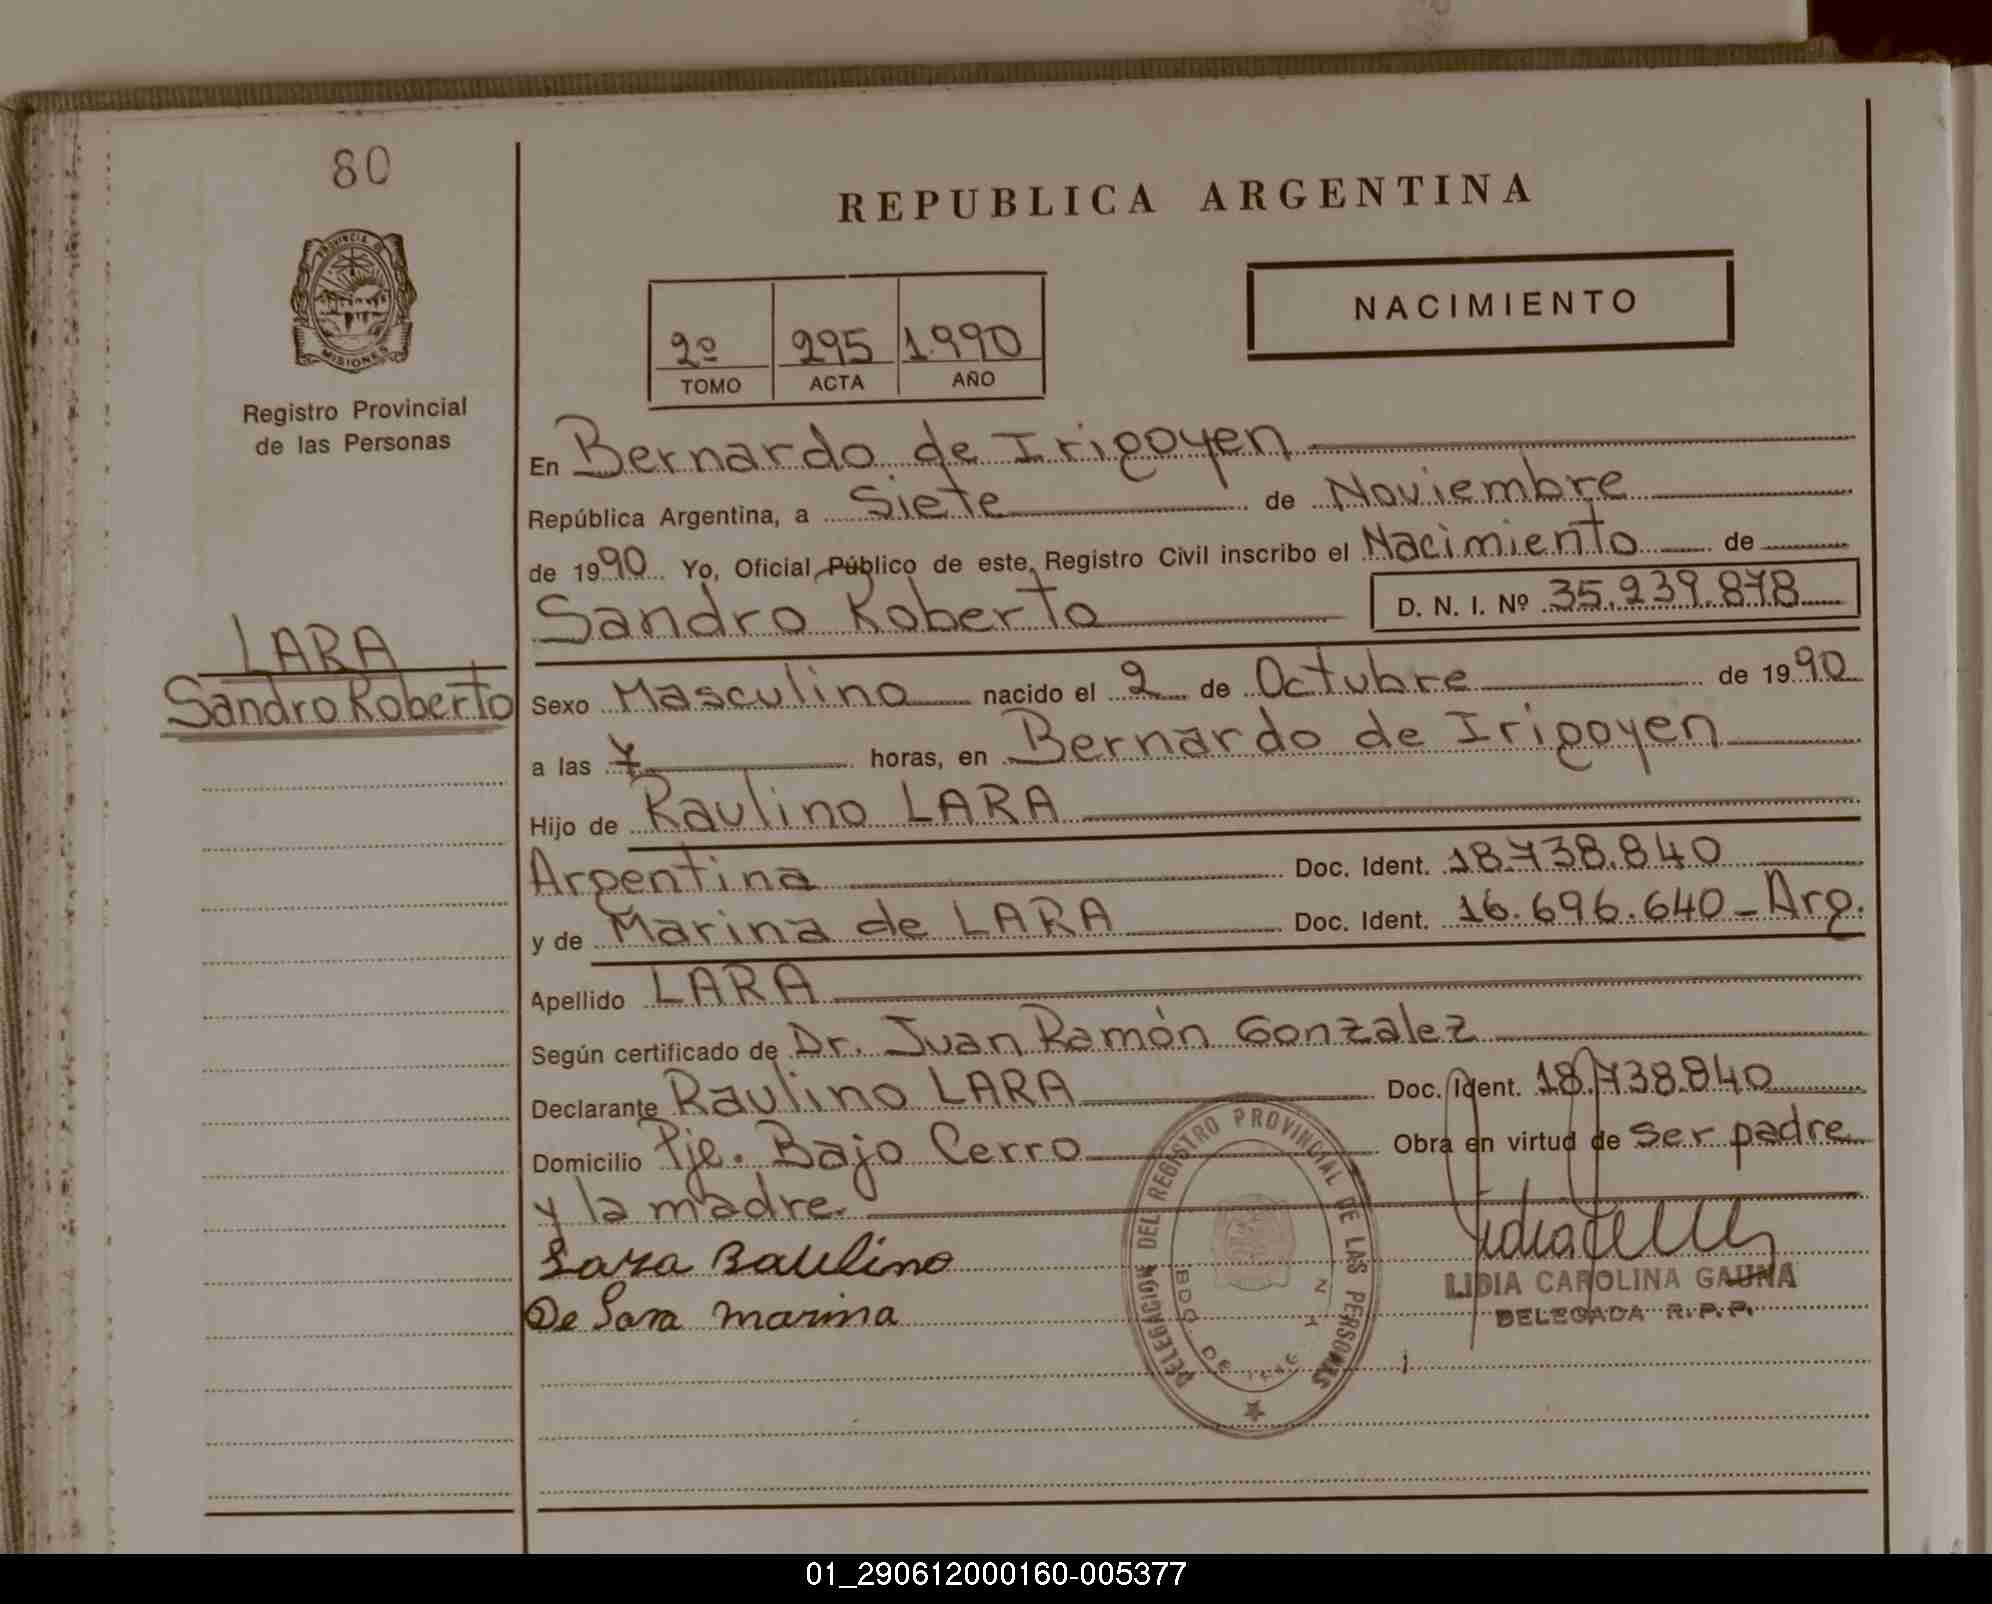 80
PROVINCIA DE
MISIONES
Registro Provincial
de las Personas
LARA
Sandro Roberto
REPUBLICA ARGENTINA
NACIMIENTO
2º 295 1.990
TOMO ACTA AÑO
En Bernardo de Irigoyen
República Argentina, a Siete de Noviembre
de 1990 Yo, Oficial Público de este Registro Civil inscribo el Nacimiento de
Sandro Roberto D. N. I. Nº 35.239.878
Sexo Masculino nacido el 2 de Octubre de 1990
a las 7 horas, en Bernardo de Irigoyen
Hijo de Raulino LARA
Argentina Doc. Ident. 18.738.840
y de Marina de LARA Doc. Ident. 16.696.640 - Arg.
Apellido LARA
Según certificado de Dr. Juan Ramón Gonzalez
Declarante Raulino LARA Doc. Ident. 18.738.840
Domicilio Pje. Bajo Cerro Obra en virtud de ser padre
y la madre.
Lara Raulino
De Lara marina
DELEGACION DEL REGISTRO PROVINCIAL DE LAS PERSONAS
BDO. DE
LIDIA CAROLINA GAUNA
DELEGADA R.P.P.
01_290612000160-005377